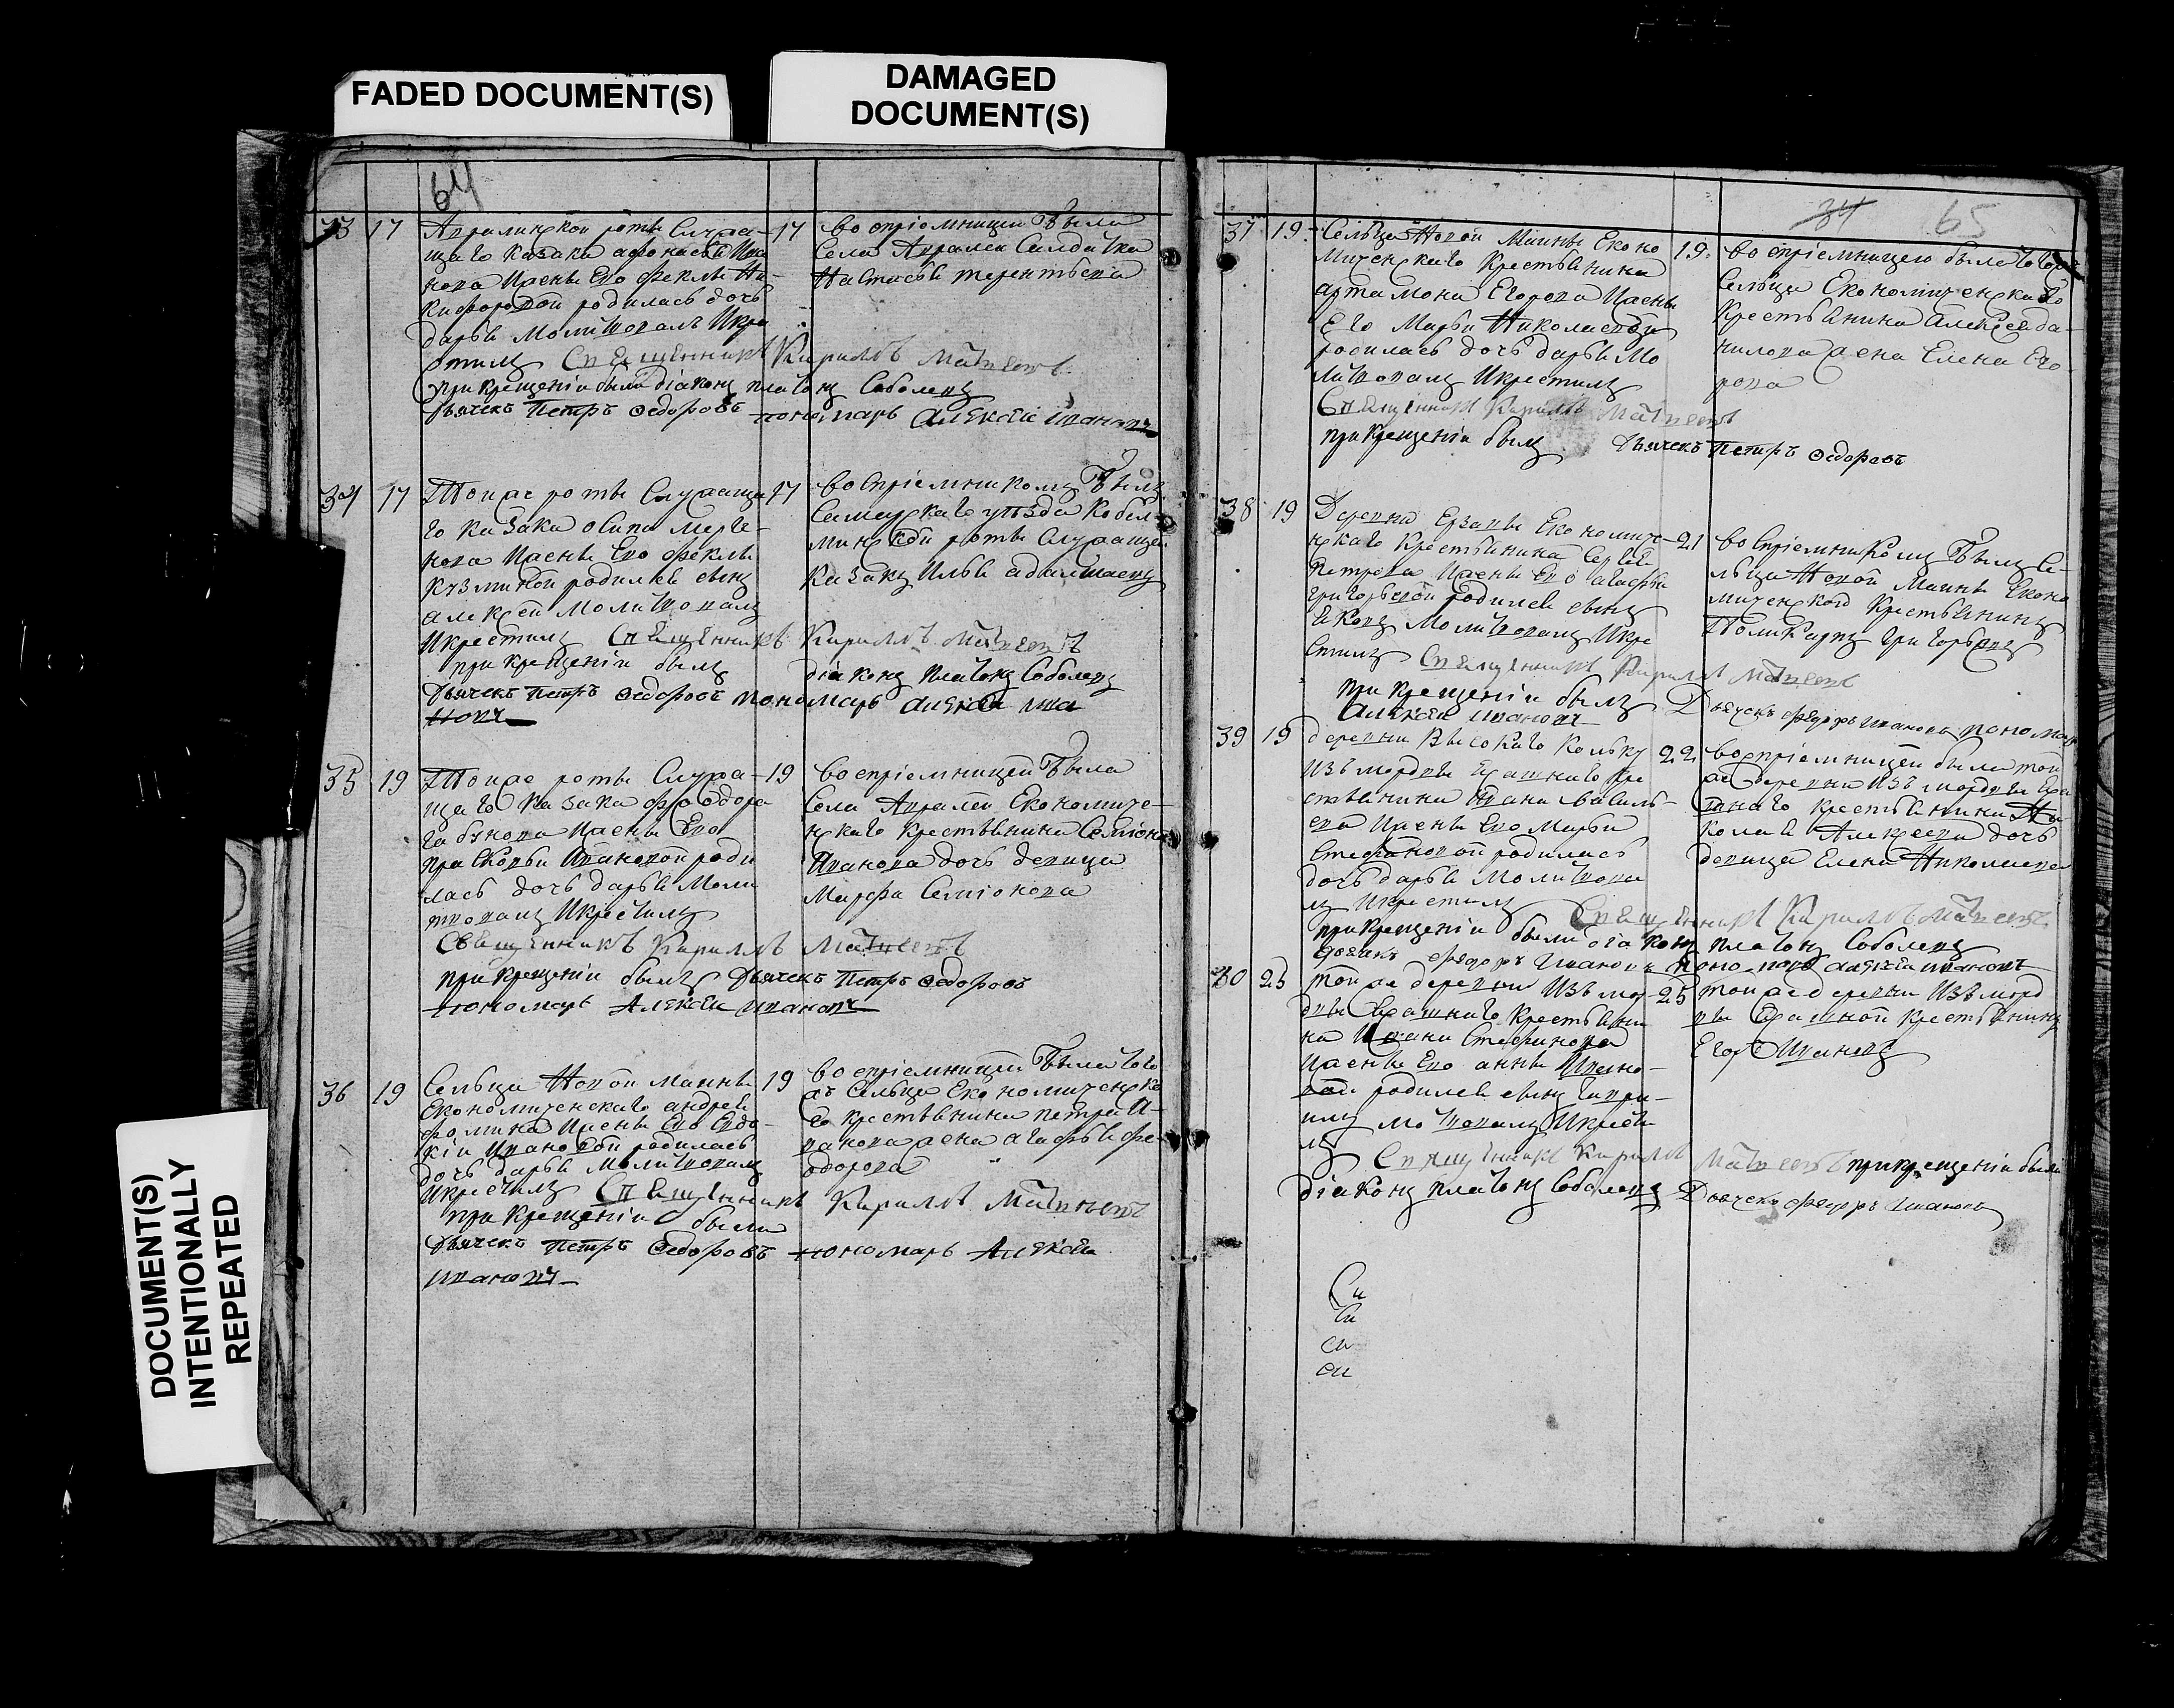 FADED DOCUMENT(S)
DAMAGED
DOCUMENT(S)
DOCUMENT(S)
INTENTIONALLY
REPEATED
64
33 17 роты Служа-
щаго казака
жены Его Феклы Ни-
кифоровой родилась дочь
дарья Молитвовалъ Икре
стилъ Священникъ Кириллъ Матвеевъ
при крещеніи были діаконъ платонъ Соболевъ
дьячекъ Петръ Федоровъ пономарь Алексей ивановъ
17 восприемницей была
Села Салдатка
Настасья терентьева
34 17 Тоиже роты Служаща
го казака осипа
жены Его Феклы
кузминой родился сынъ
алексей Молитвовалъ
Икрестилъ Священникъ Кириллъ Матвеевъ
при крещеніи былъ діаконъ платонъ Соболевъ
дьячекъ Петръ Федоровъ пономарь алексей ива
новъ
17 восприемникомъ былъ
уезда
роты Служащей
казакъ Илья
35 19 Тоиже роты Служа-
щаго казака Феодора
жены Его
прасковьи Ивановой роди
лась дочь дарья Моли
твовалъ Икрестилъ
Священникъ Кириллъ Матвеевъ
при крещеніи былъ дьячекъ Петръ Федоровъ
пономарь Алексей ивановъ
19 восприемницей была
Села Економиче-
нскаго крестьянина Семиона
Иванова дочь девица
Марфа Семионова
36 19 Сельца Новой Маины
Економиченскаго андрея
фомина жены Его Евдо-
кіи Ивановой родилась
дочь дарья Молитвовалъ
Икрестилъ Священникъ Кириллъ Матвеевъ
при крещеніи были
дьячекъ Петръ Федоровъ пономарь Алексей
ивановъ
19 восприемницей была того
жъ Сельца Економиченска
го крестьянина петра И-
ванова жена агафья фе-
одорова
34 65
37 19 Сельца Новой Маины Еконо
миченскаго Крестьянина
артамона Егорова жены
Его Марьи Николаевой
родилась дочь дарья Мо
литвовалъ Икрестилъ
Священникъ Кириллъ Матвеевъ
при крещеніи былъ дьячекъ Петръ Федоровъ
19 восприемницею была тогожъ
Сельца Економиченскаго
Крестьянина Алексея да-
нилова жена Елена Его
рова
38 19 Деревни Економиче-
нскаго Крестьянина Сергея
Петрова жены Его агафьи
григорьевой родился сынъ
Яковъ Молитвовалъ Икре
стилъ Священникъ Кириллъ Матвеевъ
при крещеніи былъ Дьячекъ федоръ ивановъ пономарь
Алексей ивановъ
21 восприемникомъ былъ Се-
льца Новой Маины Еконо
миченской Крестьянинъ
Поликарпъ григорьевъ
39 19 деревни Высокаго Колку
Изъ мордвы Ясашнаго кре
стьянина Ивана Василь-
ева жены Его Марьи
Стефановой родилась
дочь дарья Молитвова
лъ Икрестилъ Священникъ Кириллъ Матвеевъ
при крещеніи были діаконъ платонъ Соболевъ
дьячекъ федоръ ивановъ пономарь алексей ивановъ
22 восприемницей была той
же деревни Изъ мордвы Яса
шнаго крестьянина Ни
колая Алексеева дочь
девица Елена Николаева
30 25 тоиже деревни Изъ мор-
двы Ясашнаго Крестьяни
на Ивана Стефанова
жены Его анны Ивано-
вой родился сынъ гаври-
илъ молитвовалъ Икрести
лъ Священникъ Кириллъ Матвеевъ при крещеніи были
діаконъ платонъ Соболевъ Дьячекъ федоръ ивановъ
25 тоиже деревни Изъ морд
вы Ясашной крестьянинъ
Егоръ Ивановъ